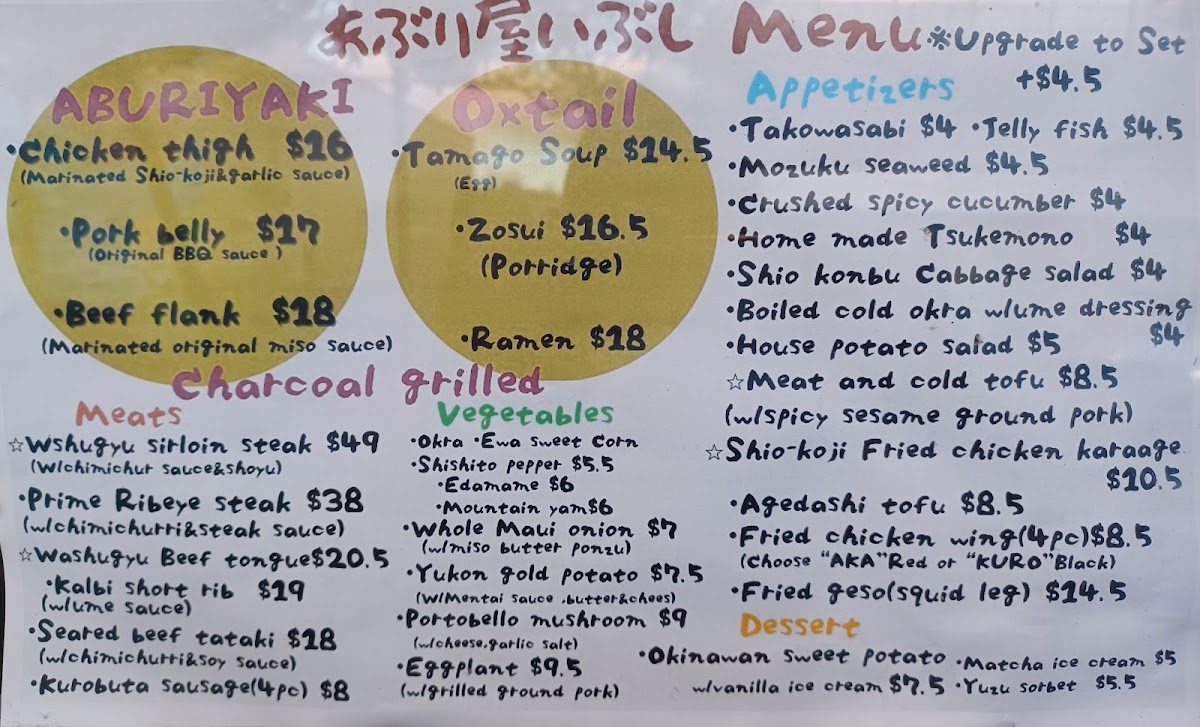 あぶり屋いぶし Menu
※Upgrade to Set
+$4.5
ABURIYAKI
・Chicken thigh $16
(Marinated Shio-koji&garlic sauce)
・Pork belly $17
(Original BBQ sauce)
・Beef flank $18
(Marinated original miso sauce)
Oxtail
・Tamago Soup $14.5
(Egg)
・Zosui $16.5
(Porridge)
・Ramen $18
Charcoal grilled
Meats
☆Wshugyu sirloin steak $49
(W/chimichur sauce&shoyu)
・Prime Ribeye steak $38
(w/chimichurri&steak sauce)
☆Washugyu Beef tongue$20.5
・Kalbi short rib $19
(w/ume sauce)
・Seared beef tataki $18
(w/chimichurri&soy sauce)
・Kurobuta sausage(4pc) $8
Vegetables
・Okra ・Ewa sweet corn
・Shishito pepper $5.5
・Edamame $6
・Mountain yam$6
・Whole Maui onion $7
(w/miso butter ponzu)
・Yukon gold potato $7.5
(W/Mentai sauce,butter&chees)
・Portobello mushroom $9
(w/cheese,garlic salt)
・Eggplant $9.5
(w/grilled ground pork)
Appetizers
・Takowasabi $4 ・Jelly fish $4.5
・Mozuku seaweed $4.5
・Crushed spicy cucumber $4
・Home made Tsukemono $4
・Shio konbu Cabbage salad $4
・Boiled cold okra w/ume dressing
$4
・House potato salad $5
☆Meat and cold tofu $8.5
(w/spicy sesame ground pork)
☆Shio-koji Fried chicken karaage
$10.5
・Agedashi tofu $8.5
・Fried chicken wing(4pc)$8.5
(Choose "AKA"Red or "KURO"Black)
・Fried geso(squid leg) $14.5
Dessert
・Okinawan sweet potato
w/vanilla ice cream $7.5
・Matcha ice cream $5
・Yuzu sorbet $5.5